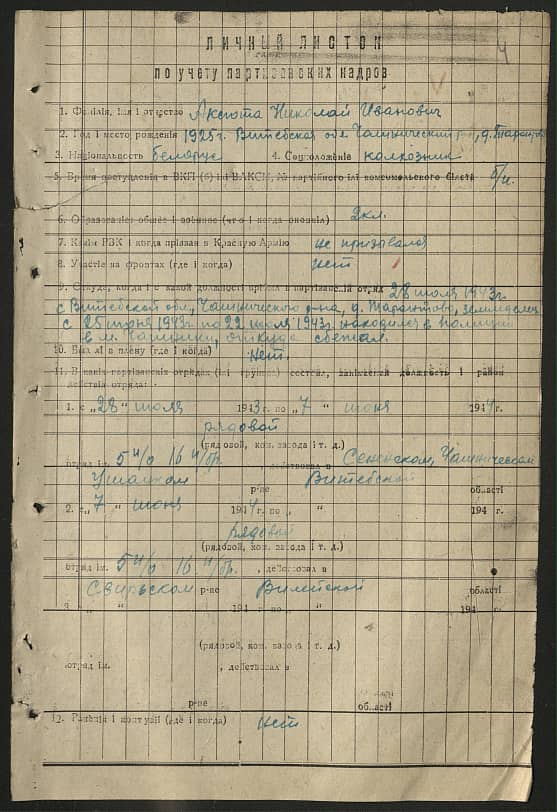 ЛИЧНЫЙ ЛИСТОК
по учету партизанских кадров
1. Фамілія, імя і отчество Аксюта Николай Иванович
2. Год і место рождения 1925 г. Витебская обл. Чашникский рн, д.
3. Національность белорус 4. Соцположеніе колхозник
5. Время поступления в ВКП (б) ілі ВЛКСМ, № партійного ілі комсомольского білета б/п.
6. Образование общее і военное (что і когда окончіл) 2кл.
7. Какім РВК і когда прізван в Красную Армію не призвался
8. Участіе на фронтах (где і когда) нет
9. Откуда, когда і с какой должності прішел в партізанскій отряд 28 июля 1943г.
с Витебской обл., Чашникского р-на, д. земледелец
с 25 июня 1943г. по 22 июля 1943г. находился в полиции
в м. Чашники, откуда сбежал.
10. Был лі в плену (где і когда) Нет.
11. В какіх партізанскіх отрядах (ілі группах) состоял, занімаемая должность і район
действія отряда:
1. с „28" июля 1943 г. по „7" июня 1944 г.
рядовой
(рядовой, ком. взвода і т. д.)
отряд ім. 5 ч/о 16 ч/бр. , действовал в Сенненском, Чашникском
Ушачком р-не Витебской області
2. с „7" июня 1944 г. по „ " 194 г.
рядовой
(рядовой, ком. взвода і т. д.)
отряд ім. 5 ч/о 16 ч/бр. , действовал в
Свирьском р-не Вилейской області
3. с „ " 194 г. по „ " 194 г.
(рядовой, ком. взвода і т. д.)
отряд ім. , действовал в
р-не області
12. Раненія і контузіі (где і когда) нет